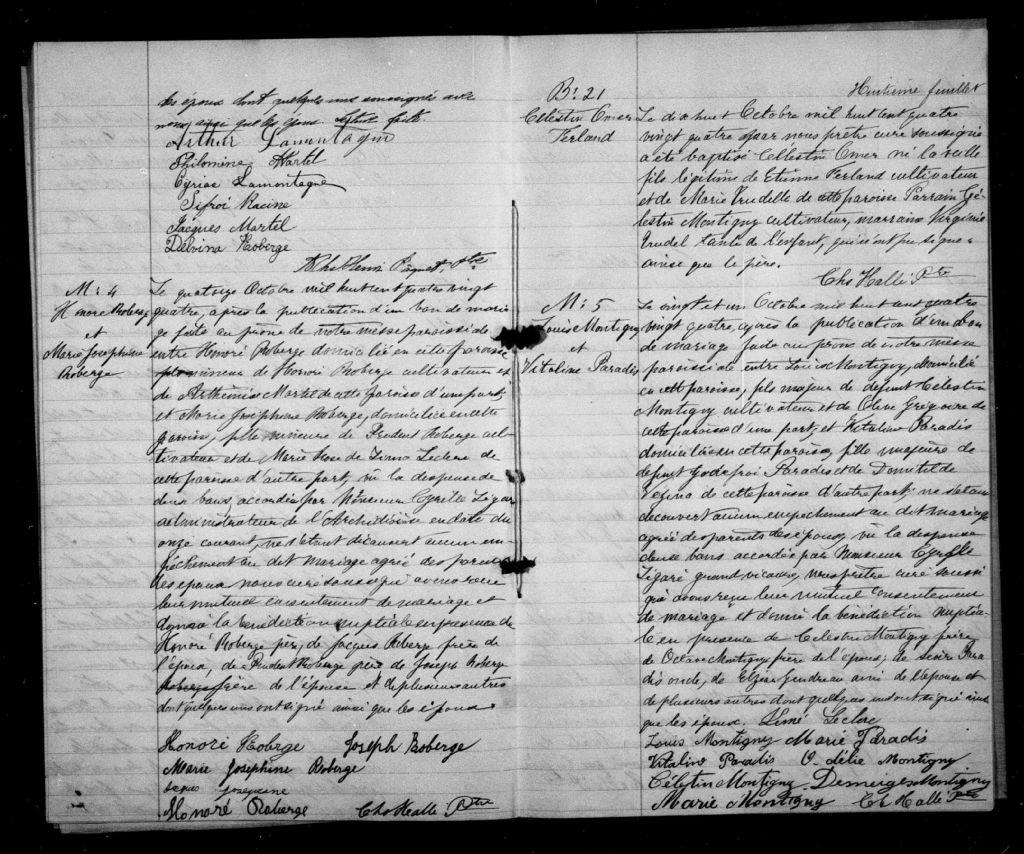 des époux dont quelques uns soussignés avec
nous ainsi que les époux. Lecture faite.
Arthur Lamontagne
Philomine Martel
Cyriac Lamontagne
Sifroi Racine
Jacques Martel
Delvina Roberge
Ptre
M: 4
Honoré Roberge
et
Marie Josephine
Roberge
Le quatorze Octobre mil huit cent quatre vingt
quatre, après la publication d'un ban de maria
ge faite au prone de notre messe paroissiale
entre Honoré Roberge domicilié en cette paroisse
fils mineur de Honoré Roberge cultivateur et
de Arthémise Martel de cette paroisse d'une part;
et Marie Joséphine Roberge, domiciliée en cette
paroisse, fille mineure de Prudent Roberge cul-
tivateur et de Marie Rose de Lima Leclerc de
cette paroisse d'autre part, vû la dispense de
deux bans, accordée par Monsieur Cyrille Légaré
administrateur de l'Archidiocèse en date du
onze courant, ne s'étant découvert aucun em-
pêchement au dit mariage agréé des parents
des époux nous curé soussigné avons reçu
leur mutuel consentement de mariage et
donné la bénédiction nuptiale en presence de
Honoré Roberge père, de Jacques Roberge frère de
l'époux, de Prudent Roberge père de Joseph Roberge
Roberge frère de l'épouse et de plusieurs autres
dont quelques uns ont signé ainsi que les époux
Honoré Roberge Joseph Roberge
Marie Josephine Roberge
Honoré Roberge Chs Halle Ptre
Huitième feuillet
B: 21
Célestin Omer
Ferland
Le dix huit Octobre mil huit cent quatre
vingt quatre par nous prêtre curé soussigné
a été baptisé Célestin Omer né la veille
fils légitime de Etienne Ferland cultivateur
et de Marie Trudelle de cette paroisse Parrain Cé-
lestin Montigny cultivateur, marraine Virginie
Trudel tante de l'enfant, qui n'ont pu signer
ainsi que le père.
Chs Halle Ptre
M: 5
Louis Montigny
et
Vitaline Paradis
Le vingt et un Octobre mil huit cent quatre
vingt quatre, après la publication d'un ban
de mariage faite au prone de notre messe
paroissiale entre Louis Montigny, domicilié
en cette paroisse, fils majeur de defunt Celestin
Montigny cultivateur et de Olive Grégoire de
cette paroisse d'une part, et Vitaline Paradis
domiciliée en cette paroisse, fille majeure de
defunt Godefroi Paradis et de Domitilde
Vezina de cette paroisse d'autre part; ne s'étant
découvert aucun empêchement au dit mariage
agréé des parents des époux, vû la dispense
de deux bans accordée par Monsieur Cyrille
Légaré grand vicaire, nous prêtre curé soussi
gné avons reçu leur mutuel consentement
de mariage et donné la bénédiction nuptia
le en presence de Celestin Montigny frère
de Octave Montigny frère de l'époux; de Para
dis oncle, de Elzéar Gendreau ami de l'épouse et
de plusieurs autres dont quelques uns ont signé ainsi
que les époux. Leclerc
Louis Montigny Marie Paradis
Vitaline Paradis O-délie Montigny
Célestin Montigny Montigny
Marie Montigny Ch Halle Ptre